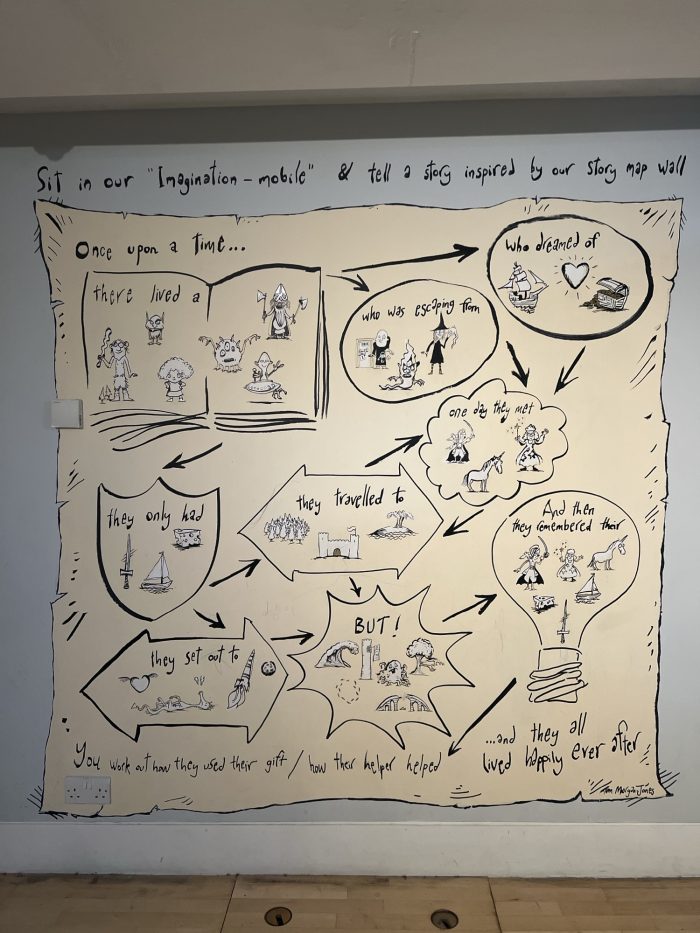 Sit in our "Imagination-mobile" & tell a story inspired by our story map wall
Once upon a time...
there lived a
who was escaping from
who dreamed of
one day they met
they only had
they travelled to
And then
they remembered their
they set out to
BUT!
You work out how they used their gift / how their helper helped
...and they all
lived happily ever after
Tom Morgan-Jones